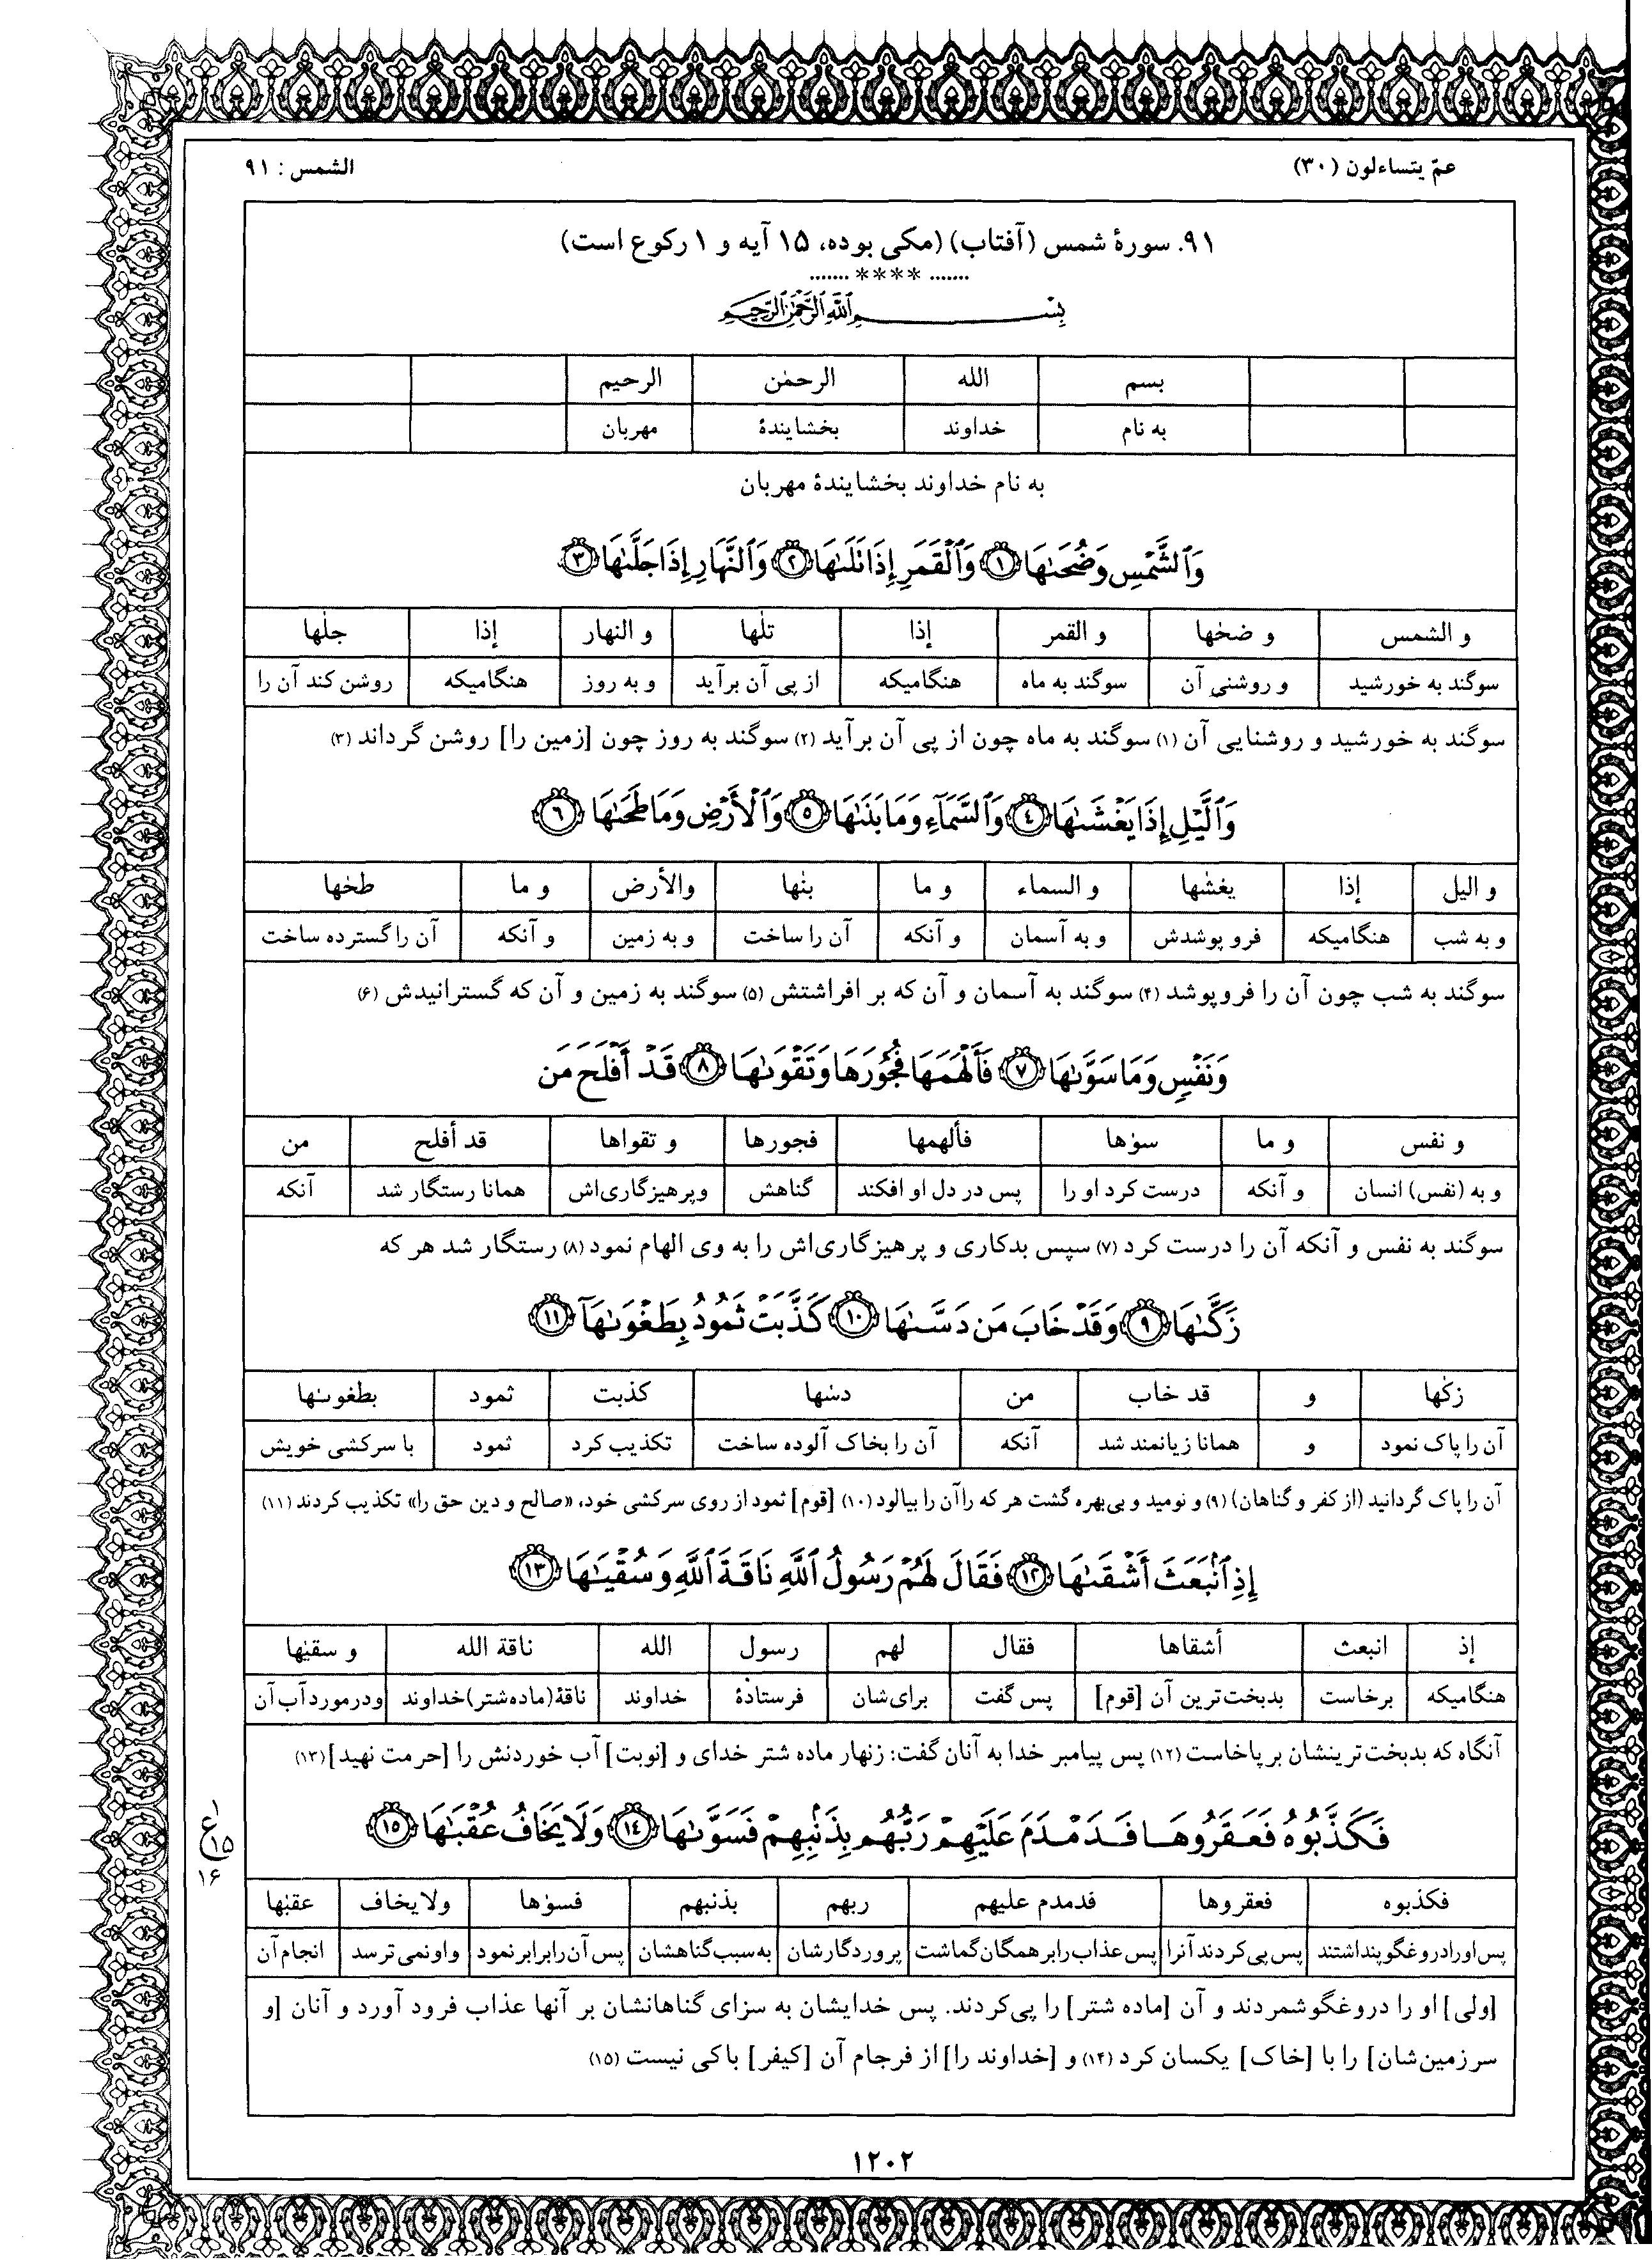 عمّ یتساءلون (۳۰)
الشمس : ۹۱
۹۱. سورهٔ شمس (آفتاب) (مکی بوده، ۱۵ آیه و ۱ رکوع است)
....... **** .......
بِسْمِ ٱللَّهِ ٱلرَّحْمَٰنِ ٱلرَّحِيمِ
بسم الله الرحمٰن الرحیم
به نام خداوند بخشایندهٔ مهربان
به نام خداوند بخشایندهٔ مهربان
وَٱلشَّمْسِ وَضُحَىٰهَا ﴿١﴾ وَٱلْقَمَرِ إِذَا تَلَىٰهَا ﴿٢﴾ وَٱلنَّهَارِ إِذَا جَلَّىٰهَا ﴿٣﴾
و الشمس و ضحٰها و القمر إذا تلٰها و النهار إذا جلٰها
سوگند به خورشید و روشنیِ آن سوگند به ماه هنگامیکه از پی آن برآید و به روز هنگامیکه روشن کند آن را
سوگند به خورشید و روشنایی آن (۱) سوگند به ماه چون از پی آن برآید (۲) سوگند به روز چون [زمین را] روشن گرداند (۳)
وَٱلَّيْلِ إِذَا يَغْشَىٰهَا ﴿٤﴾ وَٱلسَّمَآءِ وَمَا بَنَىٰهَا ﴿٥﴾ وَٱلْأَرْضِ وَمَا طَحَىٰهَا ﴿٦﴾
و الیل إذا یغشٰها و السماء و ما بنٰها والأرض و ما طحٰها
و به شب هنگامیکه فرو پوشدش و به آسمان و آنکه آن را ساخت و به زمین و آنکه آن را گسترده ساخت
سوگند به شب چون آن را فروپوشد (۴) سوگند به آسمان و آن که بر افراشتش (۵) سوگند به زمین و آن که گسترانیدش (۶)
وَنَفْسٍ وَمَا سَوَّىٰهَا ﴿٧﴾ فَأَلْهَمَهَا فُجُورَهَا وَتَقْوَىٰهَا ﴿٨﴾ قَدْ أَفْلَحَ مَن
و نفس و ما سوٰها فألهمها فجورها و تقواها قد أفلح من
و به (نفس) انسان و آنکه درست کرد او را پس در دل او افکند گناهش وپرهیزگاری‌اش همانا رستگار شد آنکه
سوگند به نفس و آنکه آن را درست کرد (۷) سپس بدکاری و پرهیزگاری‌اش را به وی الهام نمود (۸) رستگار شد هر که
زَكَّىٰهَا ﴿٩﴾ وَقَدْ خَابَ مَن دَسَّىٰهَا ﴿١٠﴾ كَذَّبَتْ ثَمُودُ بِطَغْوَىٰهَآ ﴿١١﴾
زکٰها و قد خاب من دسٰها کذبت ثمود بطغوىٰها
آن را پاک نمود و همانا زیانمند شد آنکه آن را بخاک آلوده ساخت تکذیب کرد ثمود با سرکشی خویش
آن را پاک گردانید (از کفر و گناهان) (۹) و نومید و بی‌بهره گشت هر که را آن را بیالود (۱۰) [قوم] ثمود از روی سرکشی خود، «صالح و دین حق را» تکذیب کردند (۱۱)
إِذِ ٱنۢبَعَثَ أَشْقَىٰهَا ﴿١٢﴾ فَقَالَ لَهُمْ رَسُولُ ٱللَّهِ نَاقَةَ ٱللَّهِ وَسُقْيَـٰهَا ﴿١٣﴾
إذ انبعث أشقاها فقال لهم رسول الله ناقة الله و سقیٰها
هنگامیکه برخاست بدبخت‌ترین آن [قوم] پس گفت برای‌شان فرستادهٔ خداوند ناقهٔ (ماده شتر) خداوند ودرمورد آب آن
آنگاه که بدبخت‌ترینشان بر پاخاست (۱۲) پس پیامبر خدا به آنان گفت: زنهار ماده شتر خدای و [نوبت] آب خوردنش را [حرمت نهید] (۱۳)
فَكَذَّبُوهُ فَعَقَرُوهَا فَدَمْدَمَ عَلَيْهِمْ رَبُّهُم بِذَنۢبِهِمْ فَسَوَّىٰهَا ﴿١٤﴾ وَلَا يَخَافُ عُقْبَـٰهَا ﴿١٥﴾
۱
ع
۱۵
۱۶
فکذبوه فعقروها فدمدم علیهم ربهم بذنبهم فسوٰها ولا یخاف عقبٰها
پس اورا دروغگو پنداشتند پس پی کردند آنرا پس عذاب را بر همگان گماشت پروردگارشان به سبب گناهشان پس آن را برابر نمود واو نمی ترسد انجام آن
[ولی] او را دروغگو شمردند و آن [ماده شتر] را پی کردند. پس خدایشان به سزای گناهانشان بر آنها عذاب فرود آورد و آنان [و
سرزمین‌شان] را با [خاک] یکسان کرد (۱۴) و [خداوند را] از فرجام آن [کیفر] باکی نیست (۱۵)
۱۲۰۲